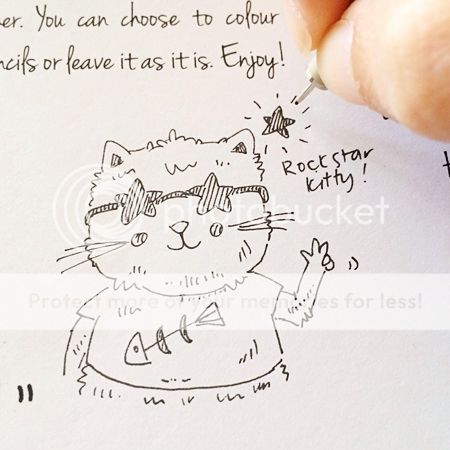 er. You can choose to colour
ncils or leave it as it is. Enjoy!
Rockstar
Kitty!
photobucket
Protect more of your memories for less!